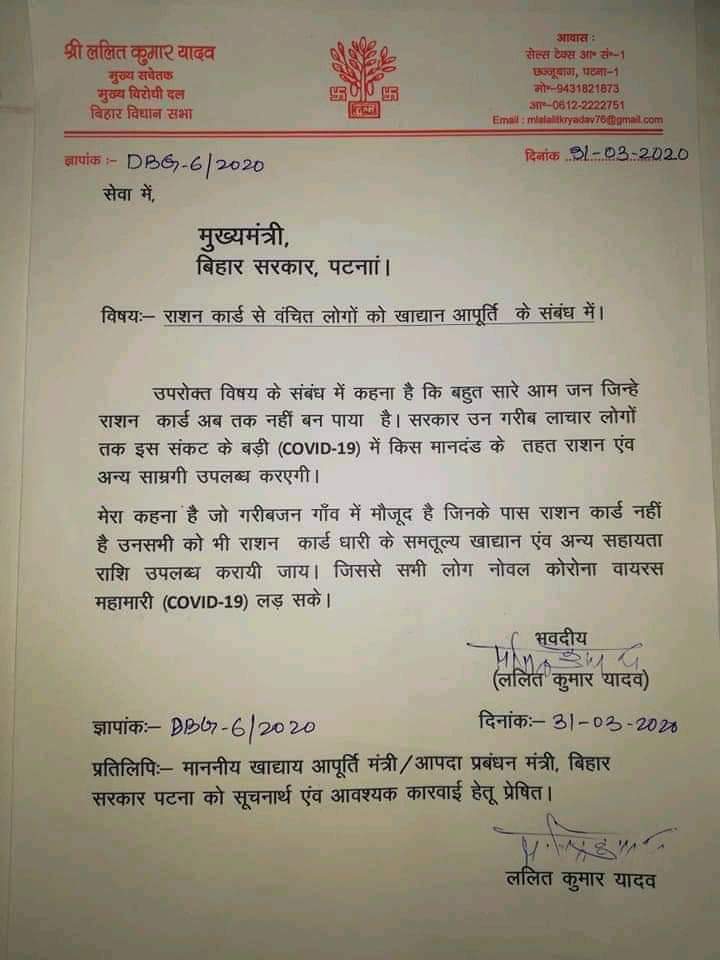 श्री ललित कुमार यादव
मुख्य सचेतक
मुख्य विरोधी दल
बिहार विधान सभा
आवास :
सेल्स टेक्स आ० सं०-1
छज्जूबाग, पटना-1
मो०-9431821873
आ०-0612-2222751
Email : mlalalitkryadav76@gmail.com
ज्ञापांक :- DBG-6/2020
दिनांक 31-03-2020
सेवा में,
मुख्यमंत्री,
बिहार सरकार, पटनाां।
विषयः– राशन कार्ड से वंचित लोगों को खाद्यान आपूर्ति के संबंध में।
उपरोक्त विषय के संबंध में कहना है कि बहुत सारे आम जन जिन्हे
राशन कार्ड अब तक नहीं बन पाया है। सरकार उन गरीब लाचार लोगों
तक इस संकट के बड़ी (COVID-19) में किस मानदंड के तहत राशन एंव
अन्य साम्रगी उपलब्ध करएगी।
मेरा कहना है जो गरीबजन गाँव में मौजूद है जिनके पास राशन कार्ड नहीं
है उनसभी को भी राशन कार्ड धारी के समतूल्य खाद्यान एंव अन्य सहायता
राशि उपलब्ध करायी जाय। जिससे सभी लोग नोवल कोरोना वायरस
महामारी (COVID-19) लड़ सके।
भवदीय
(ललित कुमार यादव)
ज्ञापांकः– DBG-6/2020
दिनांकः– 31-03-2020
प्रतिलिपिः– माननीय खाद्याय आपूर्ति मंत्री/आपदा प्रबंधन मंत्री, बिहार
सरकार पटना को सूचनार्थ एंव आवश्यक कारवाई हेतू प्रेषित।
ललित कुमार यादव